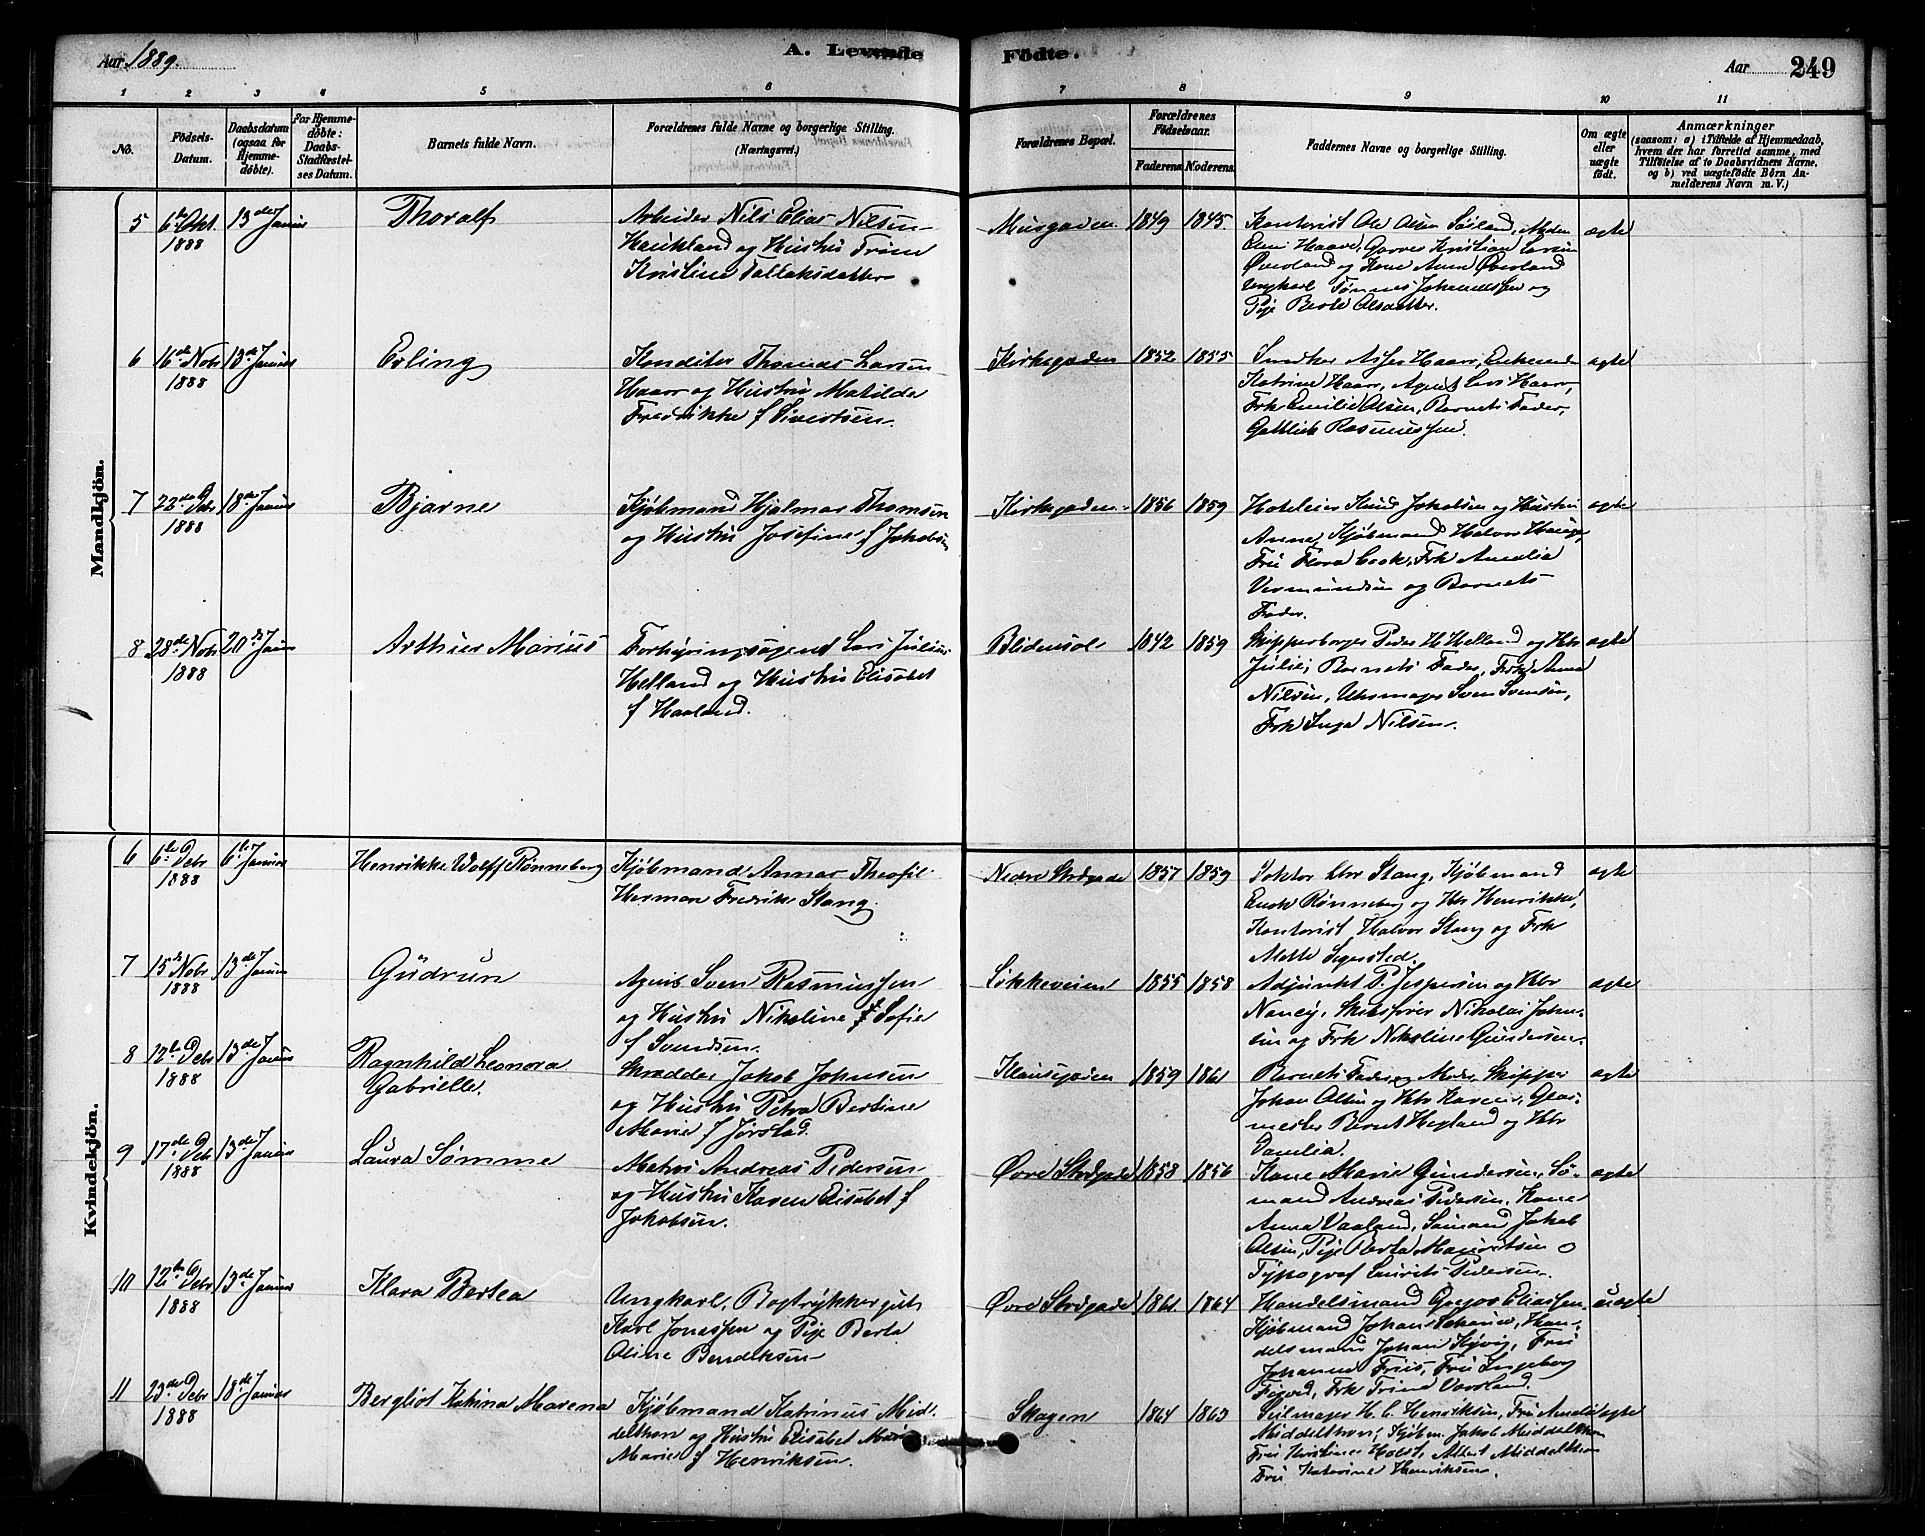 Aar 1889.
A. Levende
Födte.
Aar
249
1 2 3 4 5 6 7 8 9 10 11
No.
Födsels-Datum.
Daabsdatum (ogsaa for Hjemme-döbte).
For Hjemme-döbte: Daabs-Stadfæstel-ses Datum.
Barnets fulde Navn.
Forældrenes fulde Navne og borgerlige Stilling. (Næringsvei.)
Forældrenes Bopæl.
Forældrenes Födselsaar.
Faderens. Moderens.
Faddernes Navne og borgerlige Stilling.
Om ægte eller uægte födt.
Anmærkninger
(saasom: a) i Tilfælde af Hjemmedaab, hvem der har forrettet samme, med Tilföielse af to Daabsvidners Navne, og b) ved uægtefödte Börn An-melderens Navn m. V.)
Mandkjön.
5 6te Okt. 1888 13de Januar Thoralf
Arbeider Nils Elias Nilsen
Haukland og Hustru
Kristine Tallaksdatter
Musgaden 1849 1845.
Kontorist Ole Olsen Soiland,
Garver Kristian Larsen
Øverland og Kone Anna Øverland
Ungkarl Tønnes
Pige Berte Olsdatter.
ægte
6 16de Nobr 1888 13de Januar Erling
Konditor Thomas Larsen
Haarr og Hustru Matilde
Fredrikke f Sivertsen.
Kirkegaden 1852 1855
Snedker Haarr, Enkemand
Katrine Haarr, Agent Lars Haarr,
Frk Emilie Olsen, Barnets Fader,
Gottlieb Rasmussen.
ægte
7 22de Debr 1888 18de Januar Bjarne
Kjøbmand Hjalmar Thomsen
og Hustru Josefine f Jakobsen
Kirkegaden 1856 1859
Hoteleier Knud og Hustru
Anne, Kjøbmand Halvor
Fru Flora Cook, Frk Amalia
Vermundsen og Barnets
Fader.
ægte
8 28de Nobr 1888 20de Januar Arthur Marius
Forhyringsagent Lars Julius
Helland og Hustru Elisabet
f Haaland.
Blidensol 1842 1859
Skipperborger Peder H Helland og Hstr
Julie, Barnets Fader, Frk Anna
Nilsen, Uhrmager Sven Svensen,
Frk Inga Nilsen.
ægte
Kvindekjön.
6 6te Debr 1888 6te Januar Henrikke Wolff Rønneberg
Kjøbmand Annar Theofil
Herman Fredrik Stang.
Nedre Strdgade 1857 1859
Doktor Chr Stang, Kjøbmand
Rønneberg og Hstr Henrikke,
Kontorist Halvor Stang og Frk
Mette
ægte
7 15de Nobr 1888 13de Januar Gudrun
Agent Sven Rasmussen
og Hustru Nikoline Sofie
f Svendsen.
Løkkeveien 1855 1858
Adjunkt P. Jespersen og Hstr
Nancy, Skibsfører Nikolai John-
sen og Frk Nikoline Gundersen.
ægte
8 12te Debr 1888 13de Januar Ragnhild Leonora
Gabrielle.
Skrædder Jakob Johnsen
og Hustru Petra Bertine
Marie f Jørstad.
Klausgaden 1859 1861
Barnets Fader og Moder, Skipper
Johan Olsen og Hstr Karen, Glas-
mester Bernt Hegland og Hstr
Damilia.
ægte
9 17de Debr 1888 13de Januar Laura Sømme
Matros Andreas Pedersen
og Hustru Karen Elisabet f
Jakobsen.
Øvre Strdgade 1858 1856
Kone Marie Gundersen, Sø-
mand Andreas Pedersen, Kone
Anna Vaaland, Sømand Jakob
Olsen, Pige Berta Mauritsen o
Typograf Laurits Pedersen.
ægte
10 12te Debr 1888 13de Januar Klara Bertea
Ungkarl, Bogtrykkergut
Karl Jonassen og Pige Berta
Oline Bendiksen
Øvre Strdgade 1861 1864
Handelsmand Gregor Eliassen
Kjøbmand Johan Scharer, Han-
delsmand Johan Kyvig, Fru
Johanna Friis, Fru Ingeborg
Frk Trina Vaaland.
uægte
11 23de Debr 1888 18de Januar Bergliot Katrina Marena
Kjøbmand Katrinus Mid-
delthon og Hustru Elisabet
Marie f Henriksen.
Skagen 1864 1863
Seilmager H. C. Henriksen, Fru Amalie
Middelthon, Kjøbm. Jakob Middelthon
Fru Kristine Holst, Albert Middelthon
Fru Katrine Henriksen.
ægte